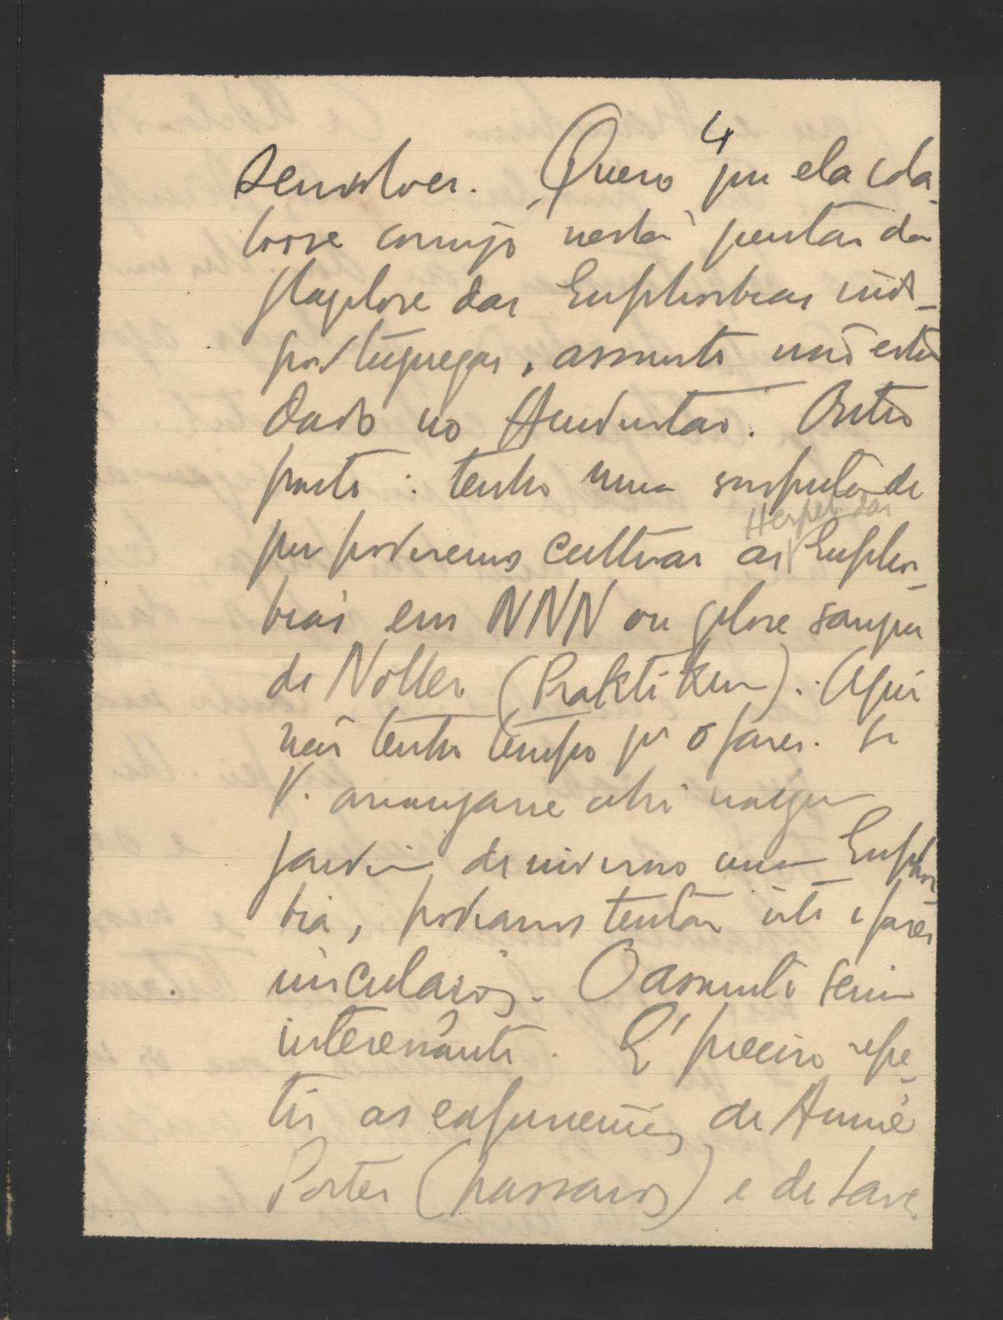 4
senvolver. Quero que ela cola-
borse comigo nesta questão da
flagelose das Euphorbias indo-
portuguezas, assunto não estu
dado no Hindustão. Outro
ponto: tenho uma suspeita de
Herpet. das
que poderemos cultivar as Euphor-
bias em NNN ou gelose sangue
de Noller (Praktikum). Aqui
não tenho tempo pa o fazer. Se
V. arranjasse ahi n'algum
jardim de inverno uma Euphor
bia, podiamos tentar isto e fazer
inculações. O assunto seria
interessante. É preciso repe-
tir as experiencias de Annie
Porter (passaros) e de Lave